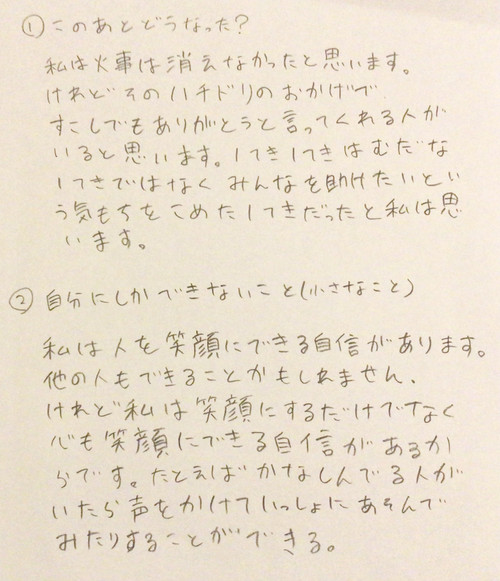 ① このあとどうなった?
私は火事は消えなかったと思います。
けれどそのハチドリのおかげで
すこしでもありがとうと言ってくれる人が
いると思います。1てき1てきはむだな
1てきではなくみんなを助けたいとい
う気もちをこめた1てきだったと私は思
います。
② 自分にしかできないこと(小さなこと)
私は人を笑顔にできる自信があります。
他の人もできることかもしれません、
けれど私は笑顔にするだけでなく
心も笑顔にできる自信があるか
らです。たとえばかなしんでる人が
いたら声をかけていっしょにあそんで
みたりすることができる。